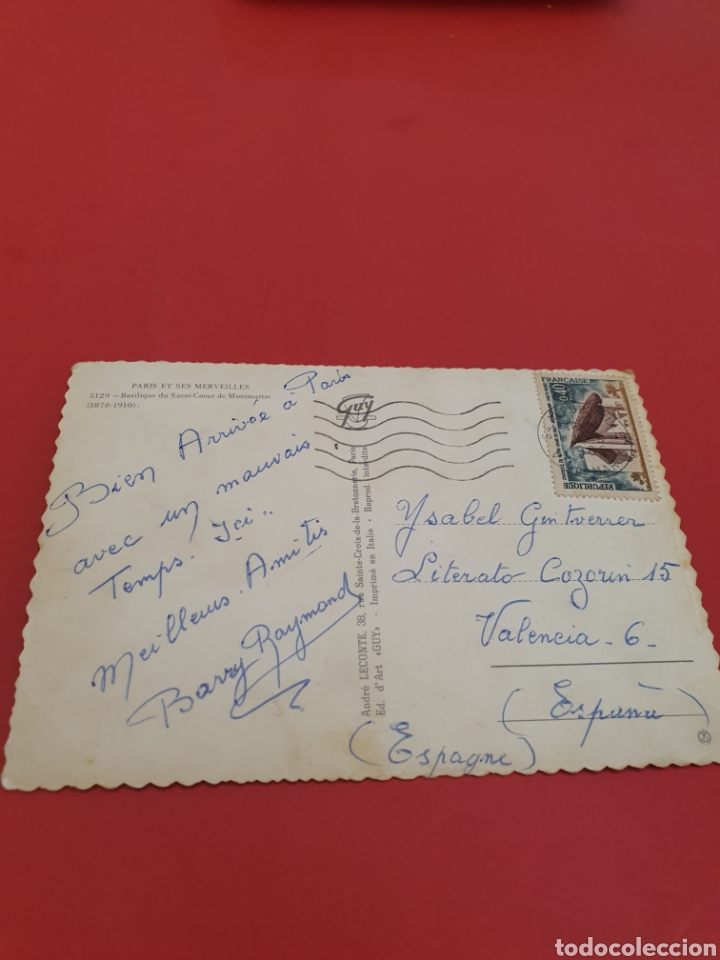 PARIS ET SES MERVEILLES
5129 - Basilique du Sacré-Coeur de Montmartre
(1876-1910).
Bien Arrivée à Paris
avec un mauvais
Temps. Ici..
Meilleurs. Amitis
Barry Raymond
Guy
André LECONTE, 38, rue Sainte-Croix-de-la-Bretonnerie, Paris
Ed. d'Art «GUY» - Imprimé en Italie - Reprod. interdite
REPUBLIQUE
FRANCAISE
0,40
Ysabel Gentverrer
Literato Cozorin 15
Valencia - 6 -
(España)
(Espagne)
todocoleccion